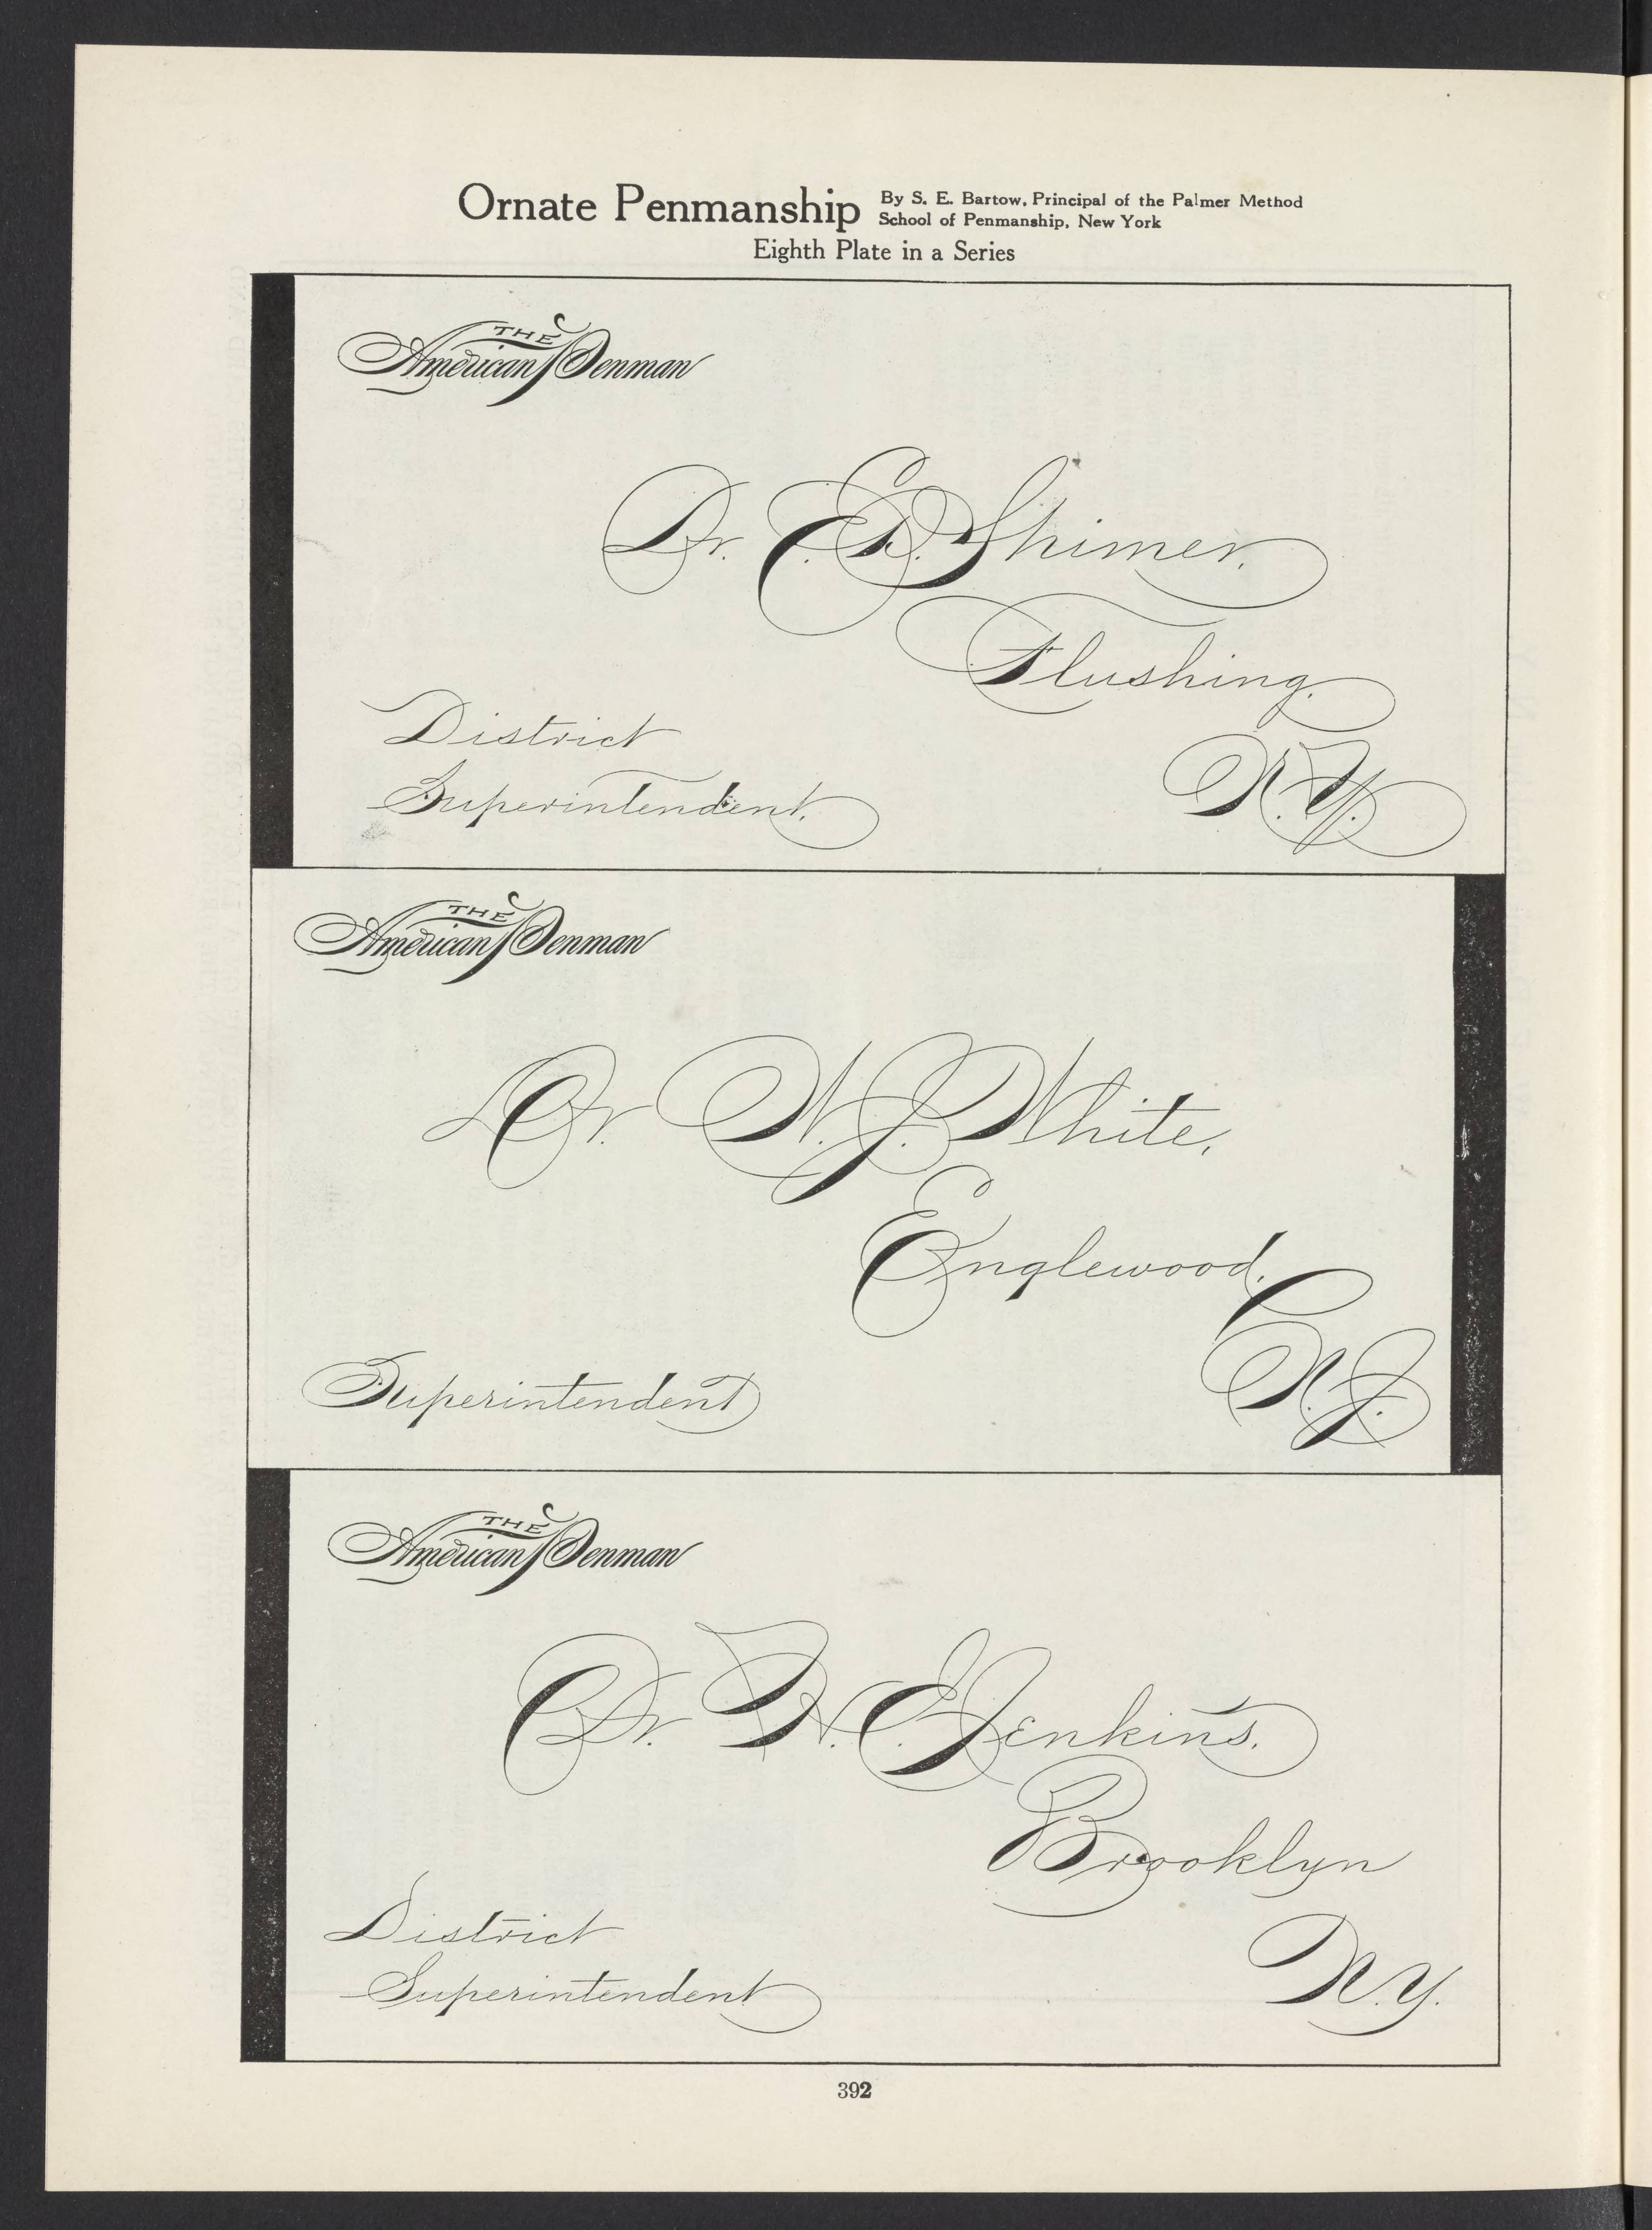 Ornate Penmanship
By S. E. Bartow, Principal of the Palmer Method
School of Penmanship, New York
Eighth Plate in a Series
THE
American Penman
Dr. E. D. Shimer,
Flushing.
N.Y.
District
Superintendent.
THE
American Penman
Dr. W. J. White,
Englewood,
N.J.
Superintendent
THE
American Penman
Dr. F. E. Jenkins.
Brooklyn
N.Y.
District
Superintendent
392